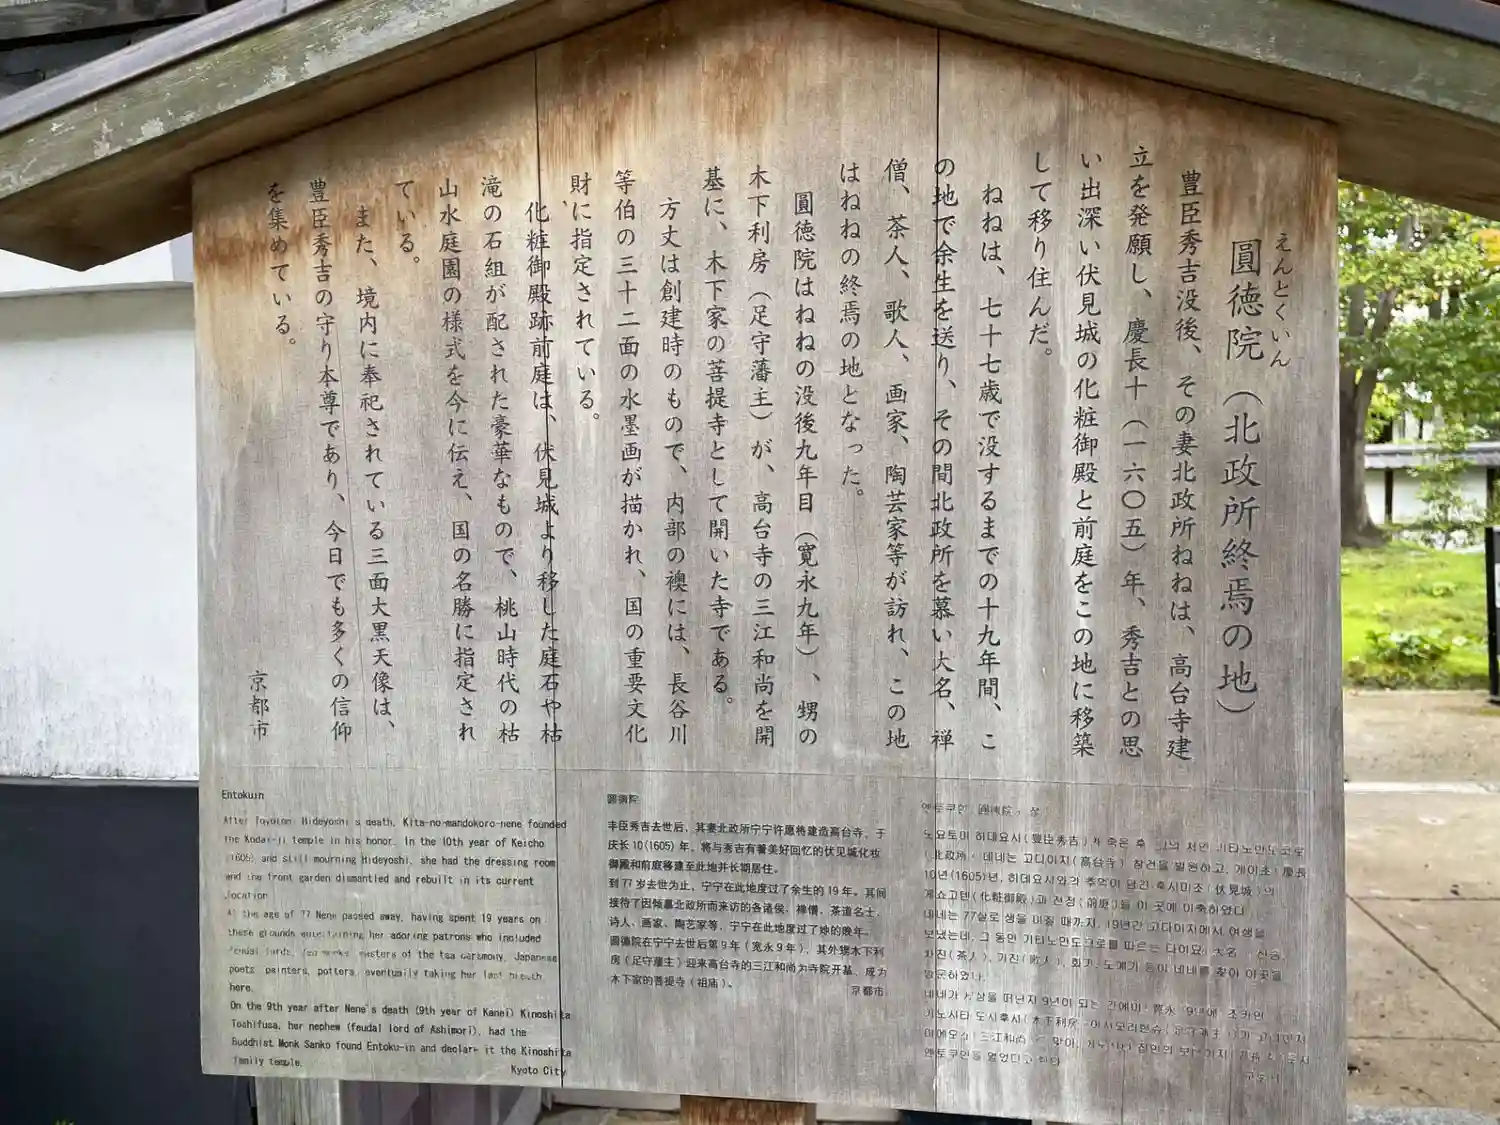 えんとくいん
圓徳院（北政所終焉の地）
豊臣秀吉没後、その妻北政所ねねは、高台寺建
立を発願し、慶長十（一六〇五）年、秀吉との思
い出深い伏見城の化粧御殿と前庭をこの地に移築
して移り住んだ。
ねねは、七十七歳で没するまでの十九年間、こ
の地で余生を送り、その間北政所を慕い大名、禅
僧、茶人、歌人、画家、陶芸家等が訪れ、この地
はねねの終焉の地となった。
圓徳院はねねの没後九年目（寛永九年）、甥の
木下利房（足守藩主）が、高台寺の三江和尚を開
基に、木下家の菩提寺として開いた寺である。
方丈は創建時のもので、内部の襖には、長谷川
等伯の三十二面の水墨画が描かれ、国の重要文化
財に指定されている。
化粧御殿跡前庭は、伏見城より移した庭石や枯
滝の石組が配された豪華なもので、桃山時代の枯
山水庭園の様式を今に伝え、国の名勝に指定され
ている。
また、境内に奉祀されている三面大黒天像は、
豊臣秀吉の守り本尊であり、今日でも多くの信仰
を集めている。
京都市
Entokuin
After Toyotomi Hideyoshi's death, Kita-no-mandokoro-nene founded
the Kodai-ji temple in his honor. In the 10th year of Keicho
(1605) and still mourning Hideyoshi, she had the dressing room
and the front garden dismantled and rebuilt in its current
location
At the age of 77 Nene passed away, having spent 19 years on
these grounds entertaining her adoring patrons who included
feudal lords, masters of the tea ceremony, Japanese
poets, painters, potters, eventually taking her last breath
here.
On the 9th year after Nene's death (9th year of Kanei) Kinoshita
Toshifusa, her nephew (feudal lord of Ashimori), had the
Buddhist Monk Sanko found Entoku-in and declare it the Kinoshita
family temple.
Kyoto City
圆德院
丰臣秀吉去世后，其妻北政所宁宁许愿将建造高台寺，于
庆长10(1605)年，将与秀吉有着美好回忆的伏见城化妆
御殿和前庭移建至此地并长期居住。
到77岁去世为止，宁宁在此地度过了余生的19年。其间
接待了因倾慕北政所而来访的各诸侯、禅僧、茶道名士、
诗人、画家、陶艺家等，宁宁在此地度过了她的晚年。
圆德院在宁宁去世后第9年（宽永9年），其外甥木下利
房（足守藩主）迎来高台寺的三江和尚为寺院开基，成为
木下家的菩提寺（祖庙）。
京都市
도요토미 히데요시(豊臣秀吉)가 죽은 후
네네는 고다이지(高台寺) 창건을 발원하고, 게이초(慶長)
10년(1605)년, 히데요시와의 추억이 담긴 후시미조(伏見城)의
게쇼고텐(化粧御殿)과 전정(前庭)을 이 곳에 이축하였다
네네는 77살로 생을 마칠 때까지, 19년간 고다이지에서 여생을
보냈는데, 그 동안 기타노만도코로를 따르는 다이묘(大名),
차진(茶人), 가진(歌人), 화가, 도예가 등이 네네를 찾아 이곳을
방문하였다.
네네가 세상을 떠난지 9년이 되는